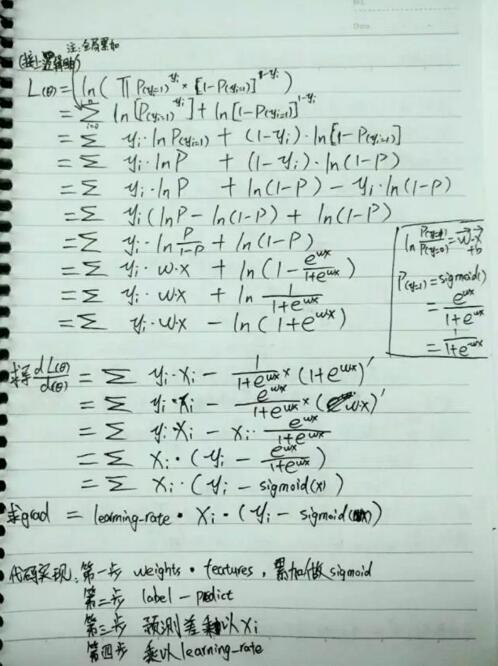 注:全局累加
(接上逻辑)
L(θ) = ln( ∏ P(yi=1)^yi × [1-P(yi=1)]^1-yi )
= ∑ i=0 n ln[P(yi=1)^yi] + ln[1-P(yi=1)]^1-yi
= ∑ yi·lnP(yi=1) + (1-yi)·ln[1-P(yi=1)]
= ∑ yi·lnP + (1-yi)·ln(1-P)
= ∑ yi·lnP + ln(1-P) - yi·ln(1-P)
= ∑ yi(lnP - ln(1-P)) + ln(1-P)
= ∑ yi·ln P/1-P + ln(1-P)
= ∑ yi·w·x + ln(1 - e^wx/1+e^wx)
= ∑ yi·w·x + ln 1/1+e^wx
= ∑ yi·w·x - ln(1+e^wx)
ln P(y=1)/P(y=0) = w·x +b
P(y=1) = sigmoid()
= e^wx/1+e^wx
= 1/1+e^-wx
求导 dL(θ)/d(θ) = ∑ yi·xi - 1/1+e^wx × (1+e^wx)'
= ∑ yi·xi - e^wx/1+e^wx × (w·x)'
= ∑ yi·xi - xi· e^wx/1+e^wx
= ∑ xi·(yi - e^wx/1+e^wx)
= ∑ xi·(yi - sigmoid(x))
求grad = learning_rate · xi·(yi - sigmoid(x))
代码实现: 第一步 weights · features, 累加做sigmoid
第二步 label - predict
第三步 预测差乘以xi
第四步 乘以learning_rate